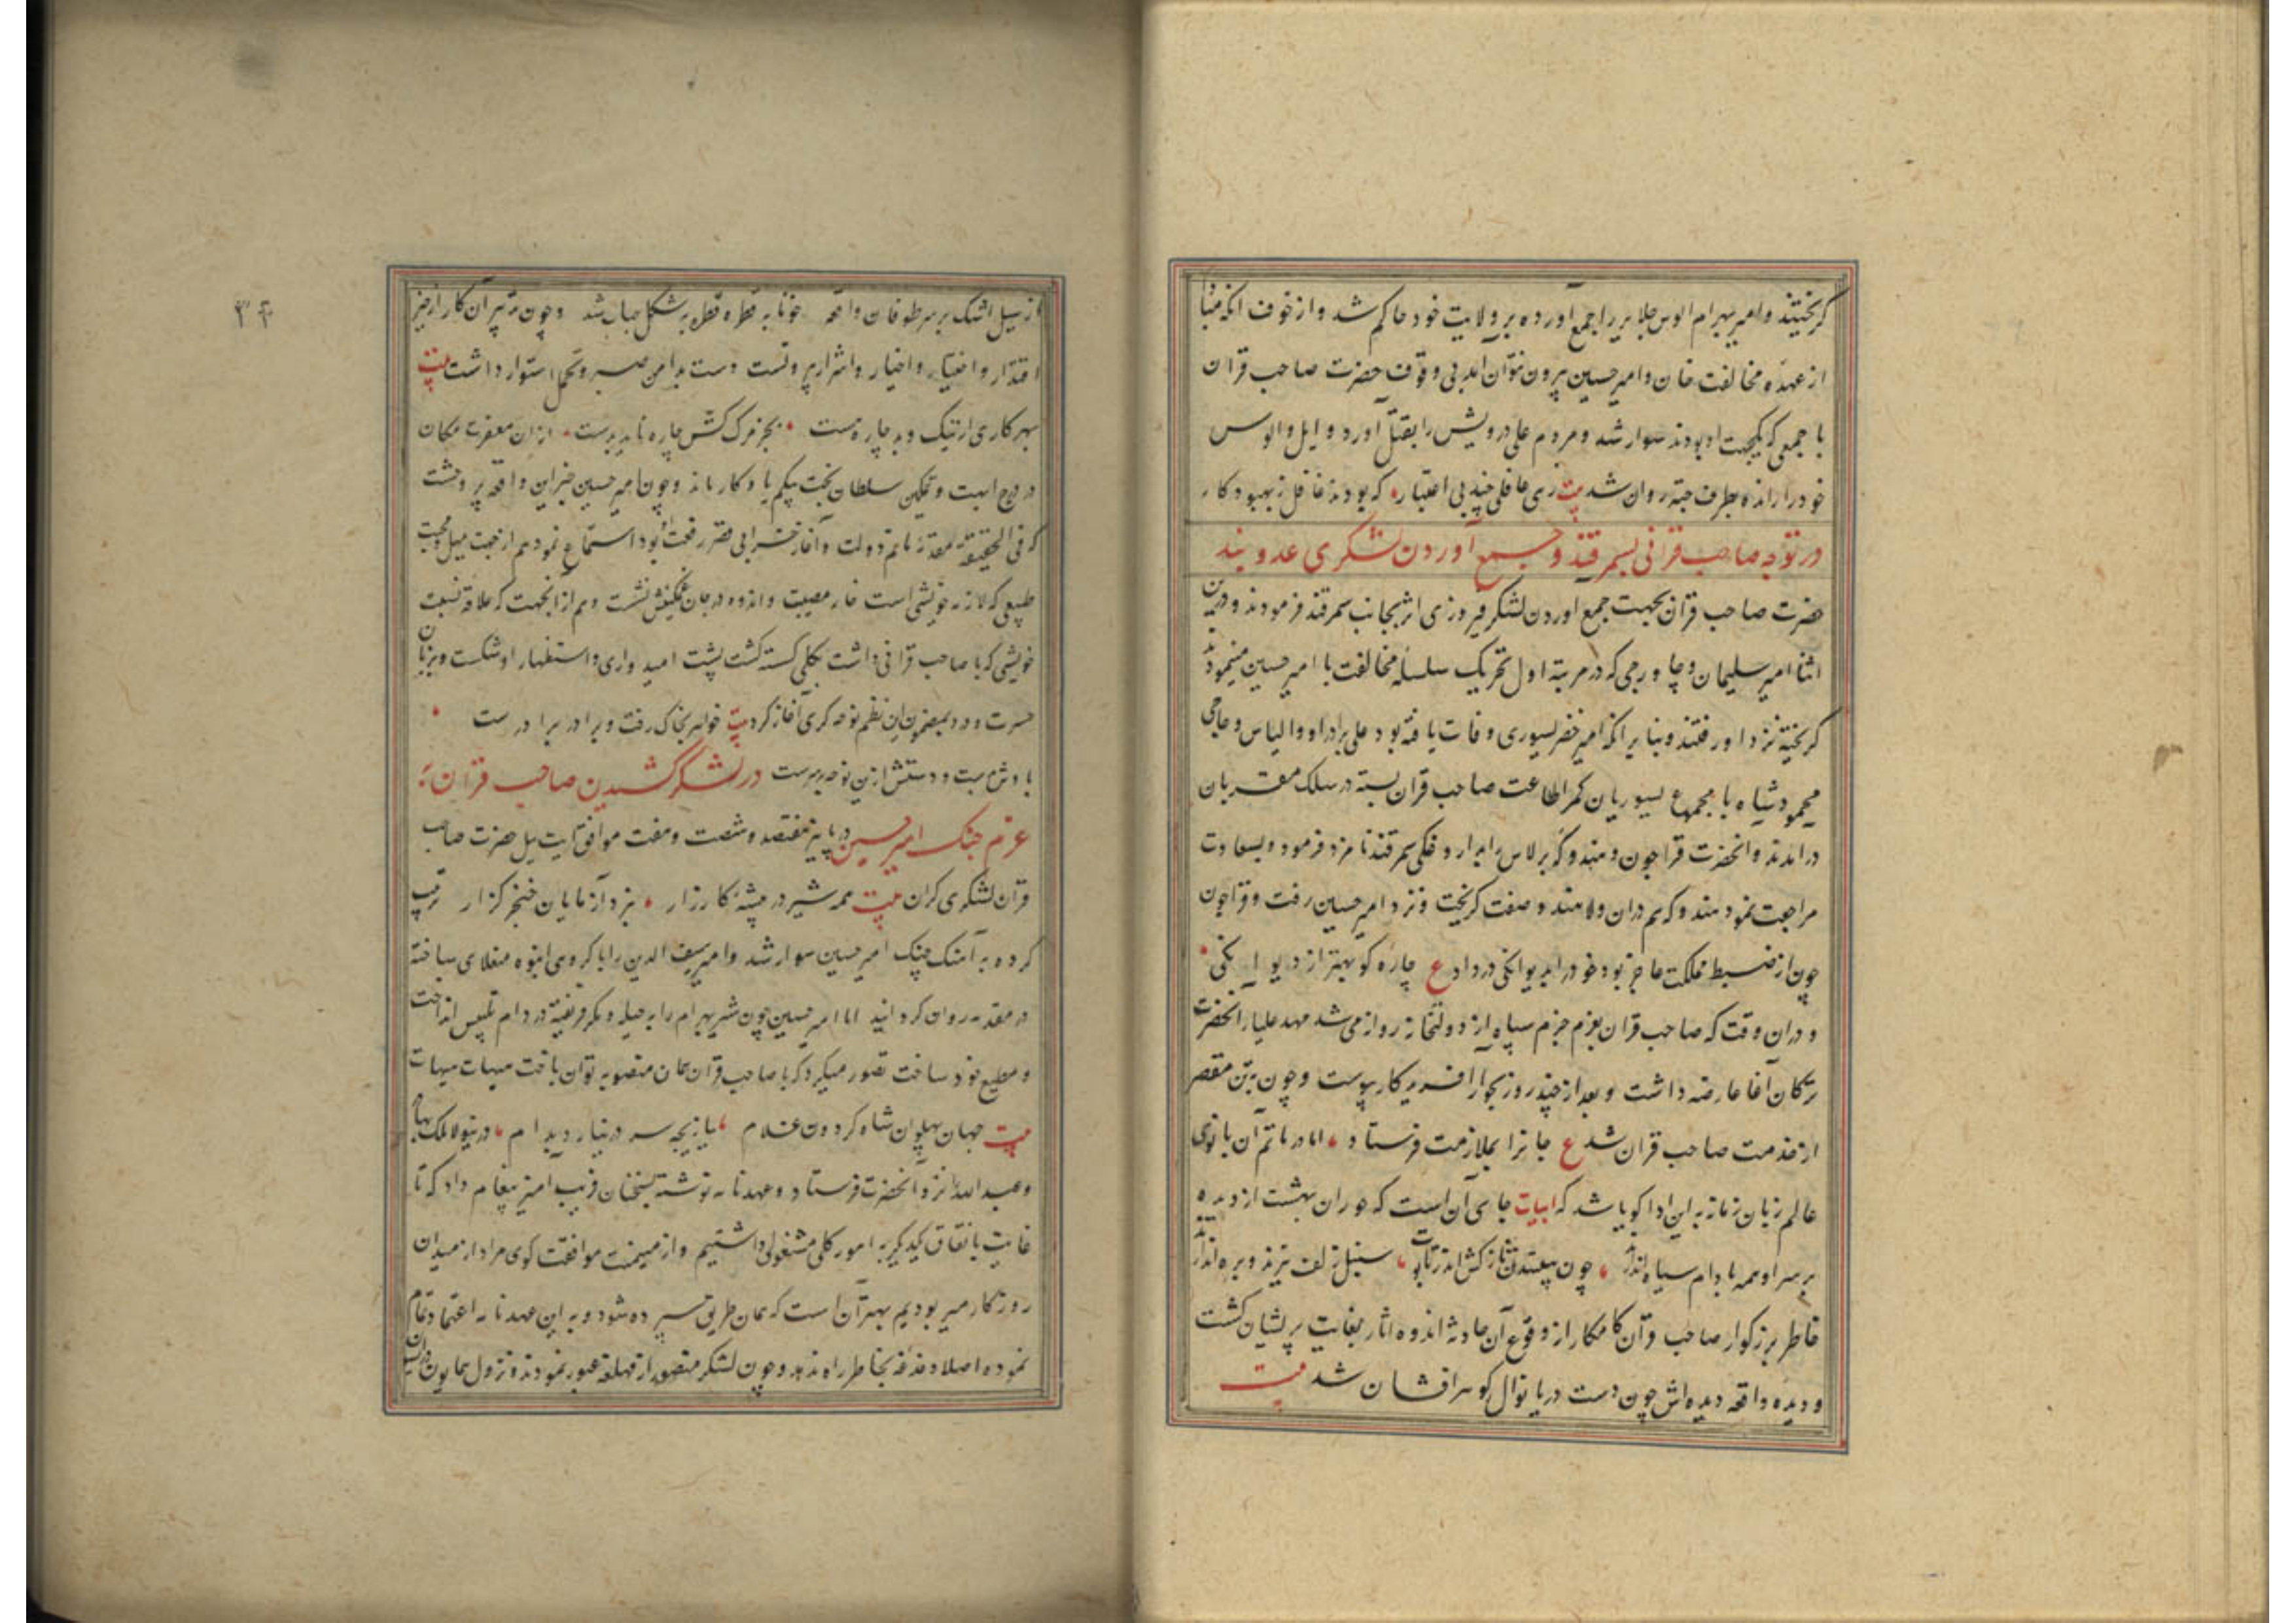 کریختند و امیر بهرام الوس جلایر را جمع آورده بر ولایت خود حاکم شد و از خوف انکه
از عهده مخالفت خان و امیر حسین بیرون نتوان امد بی وقوف حضرت صاحب قران
با جمعی که یکجهت او بودند سوار شد و مردم علی درویش را بقتل آورد و ایل و الوس
خود را رانده بطرف جته روان شد بیت زهی غافلی چند بی اعتبار که بودند غافل ز بهبود کار
در توجه صاحب قرانی بسمرقند و جمع آوردن لشکری عدو بند
حضرت صاحب قران بجهت جمع اوردن لشکر فیروزی اثر بجانب سمرقند فرمودند و درین
اثنا امیر سلیمان و چاورچی که در مرتبة اول تحریک سلسله مخالفت با امیر حسین مینمودند
کریخته نزد او رفتند و بنا بر انکه امیر خضر یسوری وفات یافته بود علی برادر او و الیاس و حاجی
محمود شاه با مجموع یسوریان کمر اطاعت صاحب قران بسته در سلک مقربان
درامدند و انحضرت قراجون و هندوکه برلاس را بدارو غکی سمرقند نامزد فرمود و بسعادت
مراجعت نمود هندوکه هم دران ولا هندو صفت کریخت و نزد امیر حسین رفت و قراجون
چون از ضبط مملکت عاجز بود خود را بدیوانکی در داد ع چاره کو بهتر از دیوانکی
و دران وقت که صاحب قران بعزم جزم سپاه از دولتخانه روانه می شد مهد علیا انحضرت
ترکان آغا عارضه داشت و بعد از چند روز بجوار افریدکار پیوست و چون بتن مقصر
از خدمت صاحب قران شد ع جانرا بملازمت فرستاد اما در ماتم آن بانوی
عالم زبان زمانه به این ادا کویا شد که ابیات جای آن است که حوران بهشت از دیده
بر سر او همه بادام سیاه اندازند چون ببینند تنش ناز کش اندر تابوت سنبل زلف برند و بره اندازند
خاطر بزرکوار صاحب قران کامکار از وقوع آن حادثه اندوه اثار بغایت پریشان کشت
و دیده واقعه دیده اش چون دست دریا نوال کوهر افشان شد بیت
از سیل اشک بر سر طوفان واقعه خونابه قطره قطره به شکل حباب شد و چون تدبیر آن کار از حیز
اقتدار و اختیار و اخیار و اشرار بیرونست دست بدامن صبر و تحمل استوار داشت بیت
بهر کاری از نیک و بد چاره هست بجز مرک کش چاره ناید بدست ازان مغفرت مکان
در برج ابهت و تمکین سلطان بخت بیکم یادکار ماند و چون امیر حسین خبر این واقعه پر وحشت
که فی الحقیقة مقدمه ماتم دولت و آغاز خرابی قصر رفعت او بود استماع نمود هم از جهت میل محبت
طبیعی که لازمه خویشی است خار مصیبت و اندوه در جان غمکینش نشست و هم از انجهت که علاقه نسبت
خویشی که با صاحب قرانی داشت بکلی کسسته کشت پشت امیدواری و استظهار او شکست و بزبان
حسرت و درد بمضمون این نظم نوحه کری آغاز کرد بیت خواهر بخاک رفت و برادر برادرست
با دشمنست و دستش ازین نوحه بر سرست در لشکر کشیدن صاحب قران به
عزم جنک امیر حسین در پاییز هفتصد و شصت و هفت موافق ایت ییل حضرت صاحب
قران لشکری کران بیت همه شیر در بیشه کارزار نبرد آزمایان خنجر کزار ترتیب
کرده به آهنک جنک امیر حسین سوار شد و امیر سیف الدین را با کروهی انبوه منغلای ساخته
در مقدمه روان کردانید اما امیر حسین چون شیر بهرام را به حیله و مکر فریفته در دام تلبیس انداخت
و مطیع خود ساخت تصور میکرد که با صاحب قران همان منصوبه توان باخت هیهات هیهات
بیت جهان پهلوان شاه کردون غلام ببازیچه سر در نیارد بدام درینولا ملک بهادر
و عبد الله را نزد آنحضرت فرستاد و عهدنامه نوشته بسخنان فریب امیز پیغام داد که تا
غایت باتفاق یکدیکر به امور کلی مشغولی داشتیم و از میمنت موافقت کوی مراد از میدان
روزکار میر بودیم بهتر آن است که همان طریق سپرده شود و به این عهدنامه اعتماد تمام
نموده اصلا دغدغه بخاطر راه ندهد و چون لشکر منصور از قهلغه عبور نمودند و نزول همایون